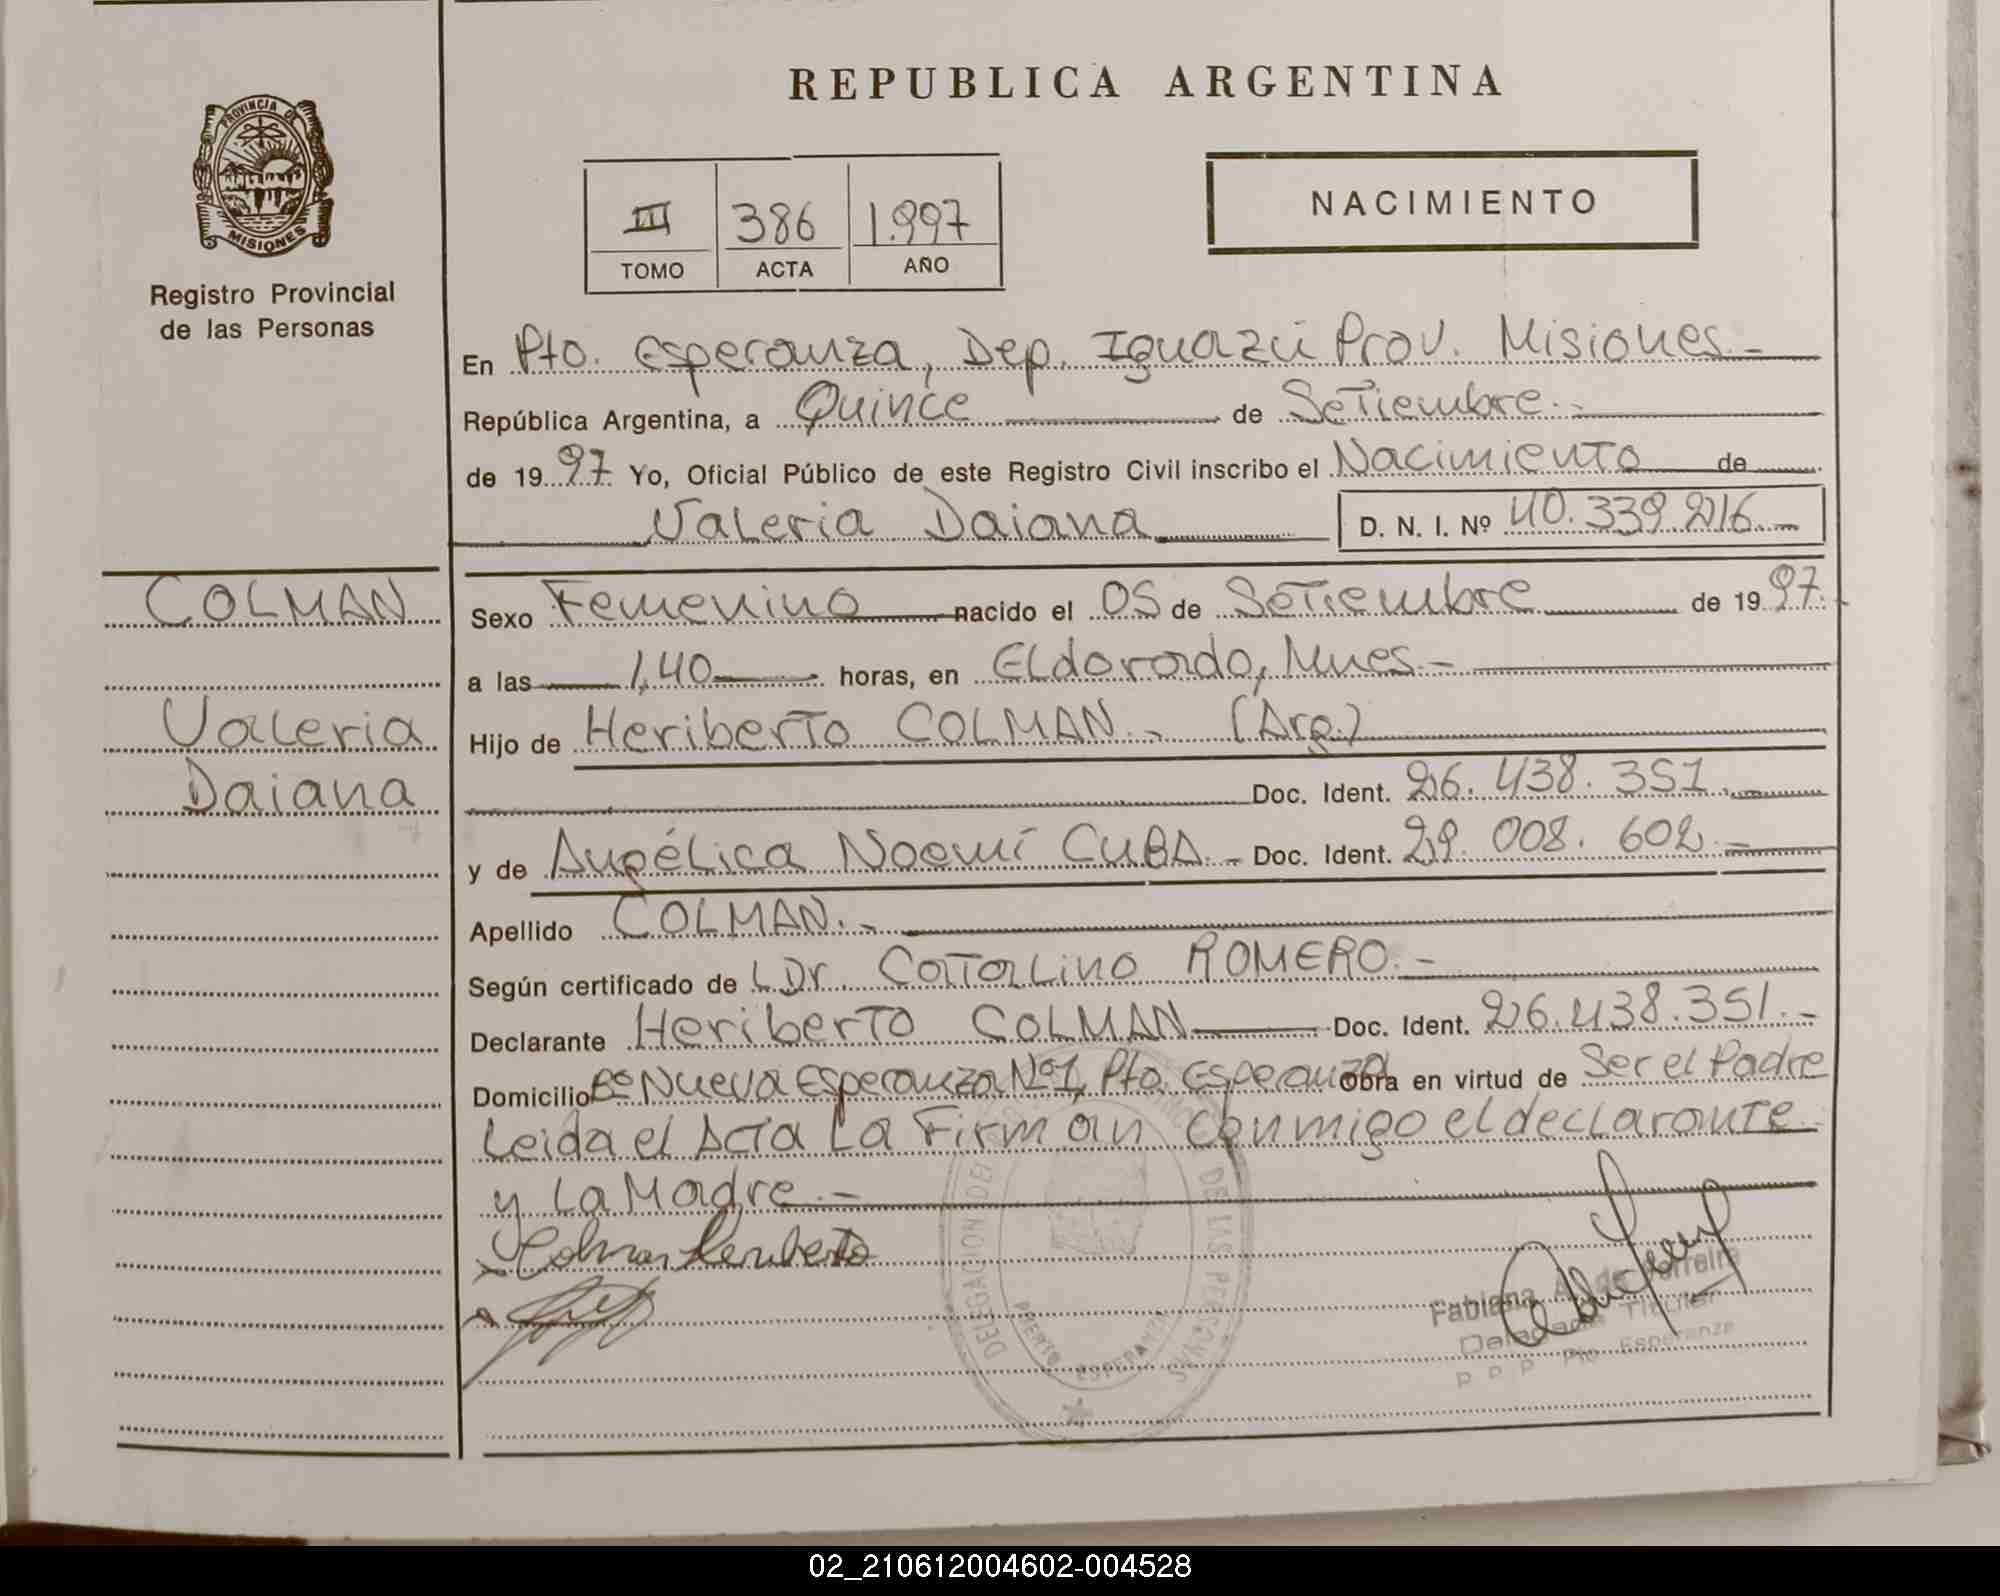 REPUBLICA ARGENTINA
PROVINCIA DE
MISIONES
Registro Provincial
de las Personas
III 386 1.997
TOMO ACTA AÑO
NACIMIENTO
En Pto. Esperanza, Dep. Iguazú Prov. Misiones.-
República Argentina, a Quince de Setiembre.-
de 1997. Yo, Oficial Público de este Registro Civil inscribo el Nacimiento de
Valeria Daiana D. N. I. Nº 40.339.216.-
COLMAN
Valeria
Daiana
Sexo Femenino nacido el 05 de Setiembre de 1997.
a las 1,40 horas, en Eldorado, Mnes.-
Hijo de Heriberto COLMAN.- (Arg.)
Doc. Ident. 26.438.351.-
y de Angélica Noemí CUBA.- Doc. Ident. 29.008.602.-
Apellido COLMAN.-
Según certificado de L Dr. Catalino ROMERO.-
Declarante Heriberto COLMAN Doc. Ident. 26.438.351.-
Domicilio Bº Nueva Esperanza Nº1, Pto. Esperanza Obra en virtud de Ser el Padre
Leida el Acta La Firman Conmigo el declarante
y La Madre.-
Colman Heriberto
DELEGACION DEL DE LAS PERSONAS
PUERTO ESPERANZA
Fabiana Ferreira
Delegada Titular
Pto Esperanza
02_210612004602-004528